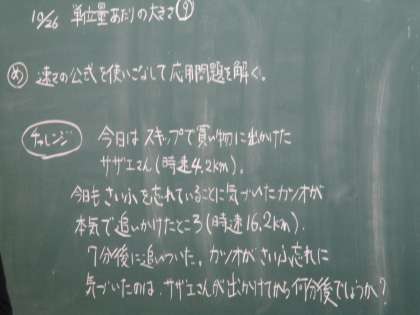 10/26 単位量あたりの大きさ⑨
め 速さの公式を使いこなして応用問題を解く。
チャレンジ 今日はスキップで買い物に出かけた
サザエさん(時速4.2km)。
今日もさいふを忘れていることに気づいたカツオが
本気で追いかけたところ(時速16.2km)、
7分後に追いついた。カツオがさいふ忘れに
気づいたのは、サザエさんが出かけてから何分後でしょうか?